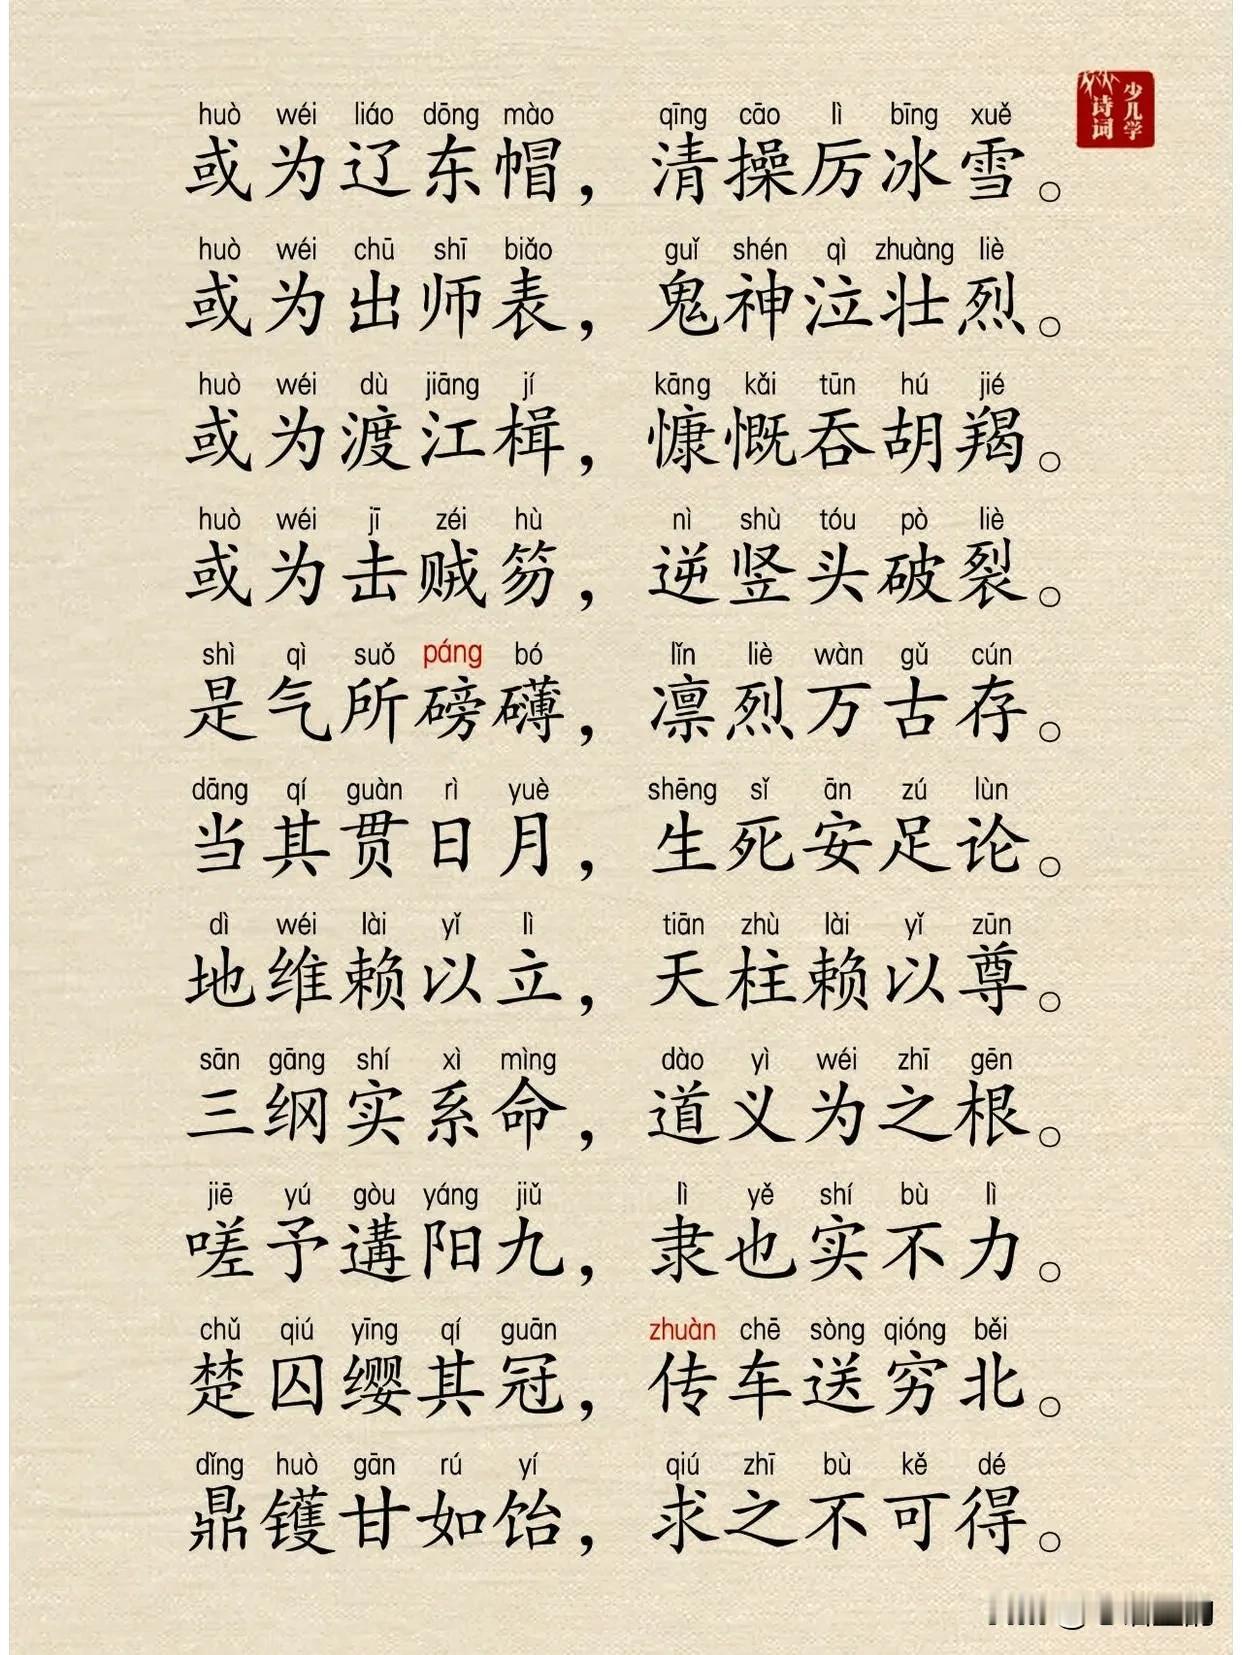 少儿学
诗词
huò wéi liáo dōng mào qīng cāo lì bīng xuě
或为辽东帽，清操厉冰雪。
huò wéi chū shī biǎo guǐ shén qì zhuàng liè
或为出师表，鬼神泣壮烈。
huò wéi dù jiāng jí kāng kǎi tūn hú jié
或为渡江楫，慷慨吞胡羯。
huò wéi jī zéi hù nì shù tóu pò liè
或为击贼笏，逆竖头破裂。
shì qì suǒ páng bó lǐn liè wàn gǔ cún
是气所磅礴，凛烈万古存。
dāng qí guàn rì yuè shēng sǐ ān zú lùn
当其贯日月，生死安足论。
dì wéi lài yǐ lì tiān zhù lài yǐ zūn
地维赖以立，天柱赖以尊。
sān gāng shí xì mìng dào yì wéi zhī gēn
三纲实系命，道义为之根。
jiē yú gòu yáng jiǔ lì yě shí bù lì
嗟予遘阳九，隶也实不力。
chǔ qiú yīng qí guān zhuàn chē sòng qióng běi
楚囚缨其冠，传车送穷北。
dǐng huò gān rú yí qiú zhī bù kě dé
鼎镬甘如饴，求之不可得。